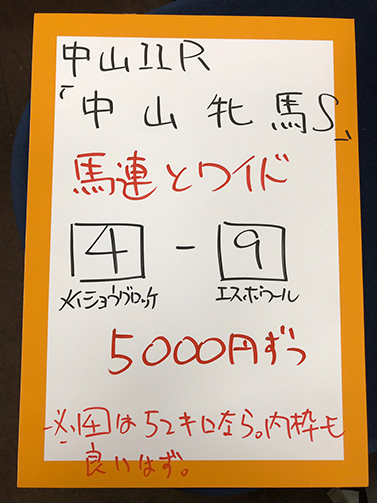 中山11R
「中山牝馬S」
馬連とワイド
4 - 9
メイショウグロッケ エスポワール
5000円ずつ
※4は52キロなら。内枠も
良いはず。